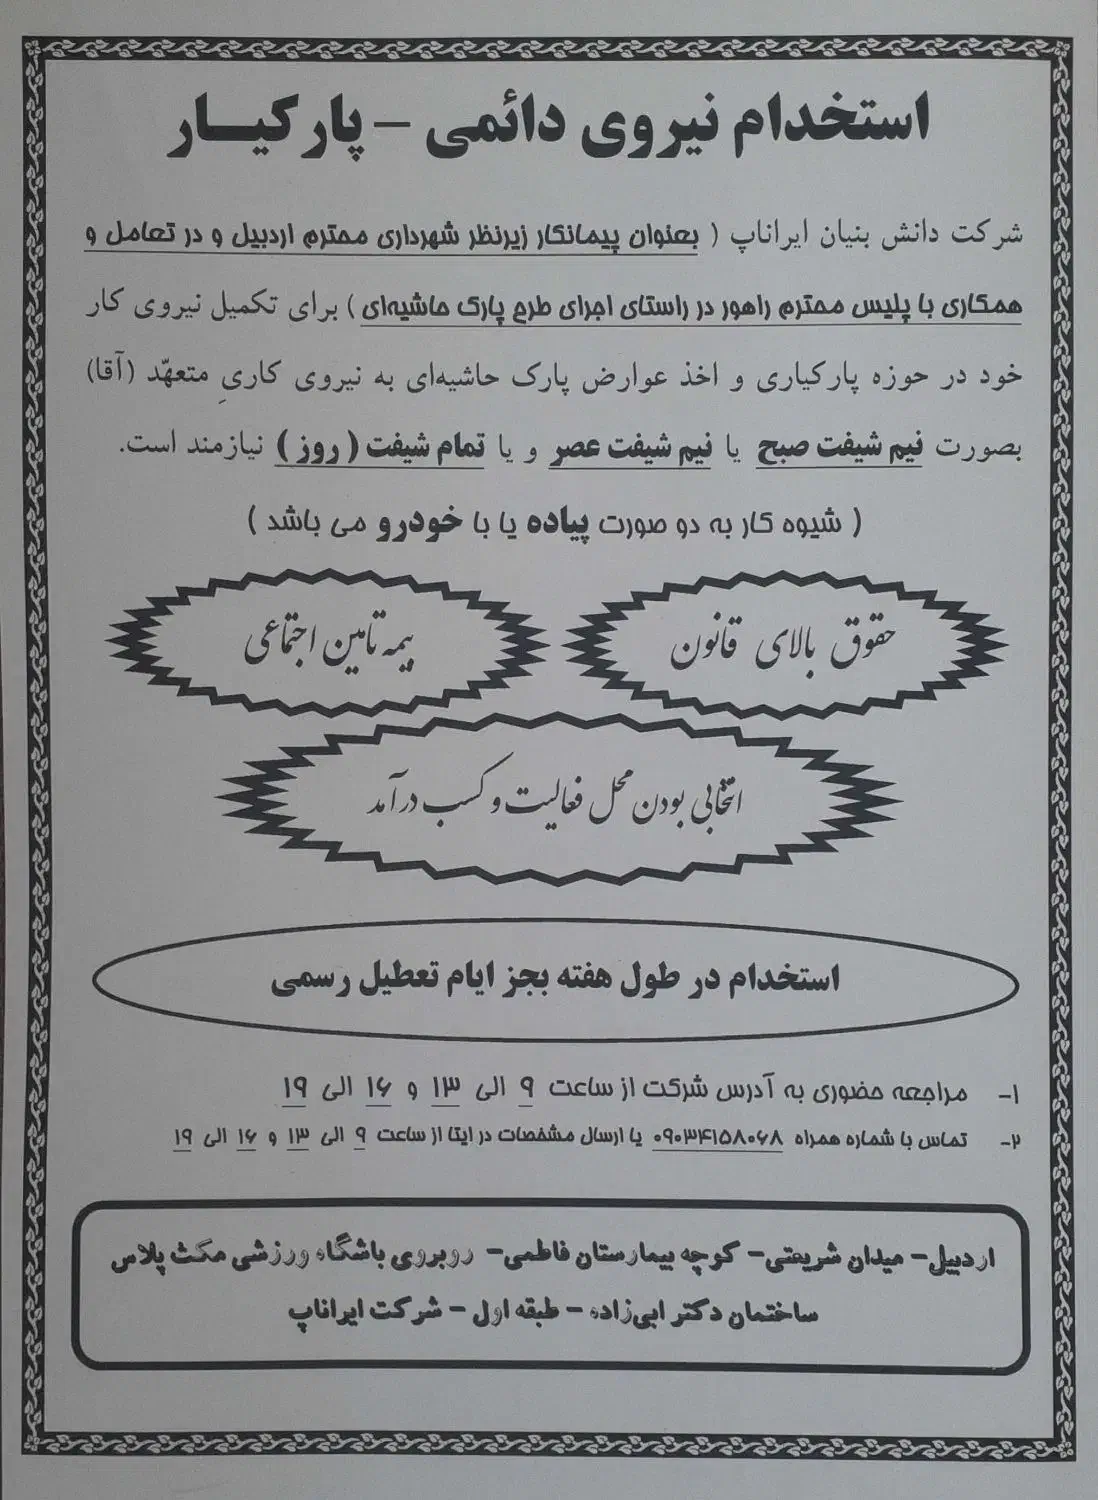 استخدام نیروی دائمی – پارکیــار
شرکت دانش بنیان ایراناپ ( بعنوان پیمانکار زیرنظر شهرداری محترم اردبیل و در تعامل و
همکاری با پلیس محترم راهور در راستای اجرای طرح پارک حاشیه‌ای ) برای تکمیل نیروی کار
خود در حوزه پارکیاری و اخذ عوارض پارک حاشیه‌ای به نیروی کاریِ متعهّد (آقا)
بصورت نیم شیفت صبح یا نیم شیفت عصر و یا تمام شیفت ( روز ) نیازمند است.
( شیوه کار به دو صورت پیاده یا با خودرو می باشد )
حقوق بالای قانون
بیمه تامین اجتماعی
انتخابی بودن محل فعالیت و کسب درآمد
استخدام در طول هفته بجز ایام تعطیل رسمی
۱- مراجعه حضوری به آدرس شرکت از ساعت ۹ الی ۱۳ و ۱۶ الی ۱۹
۲- تماس با شماره همراه ۰۹۰۳۴۱۵۸۰۶۸ یا ارسال مشخصات در ایتا از ساعت ۹ الی ۱۳ و ۱۶ الی ۱۹
اردبیل- میدان شریعتی- کوچه بیمارستان فاطمی- روبروی باشگاه ورزشی مکث پلاس
ساختمان دکتر ابی‌زاده – طبقه اول – شرکت ایراناپ